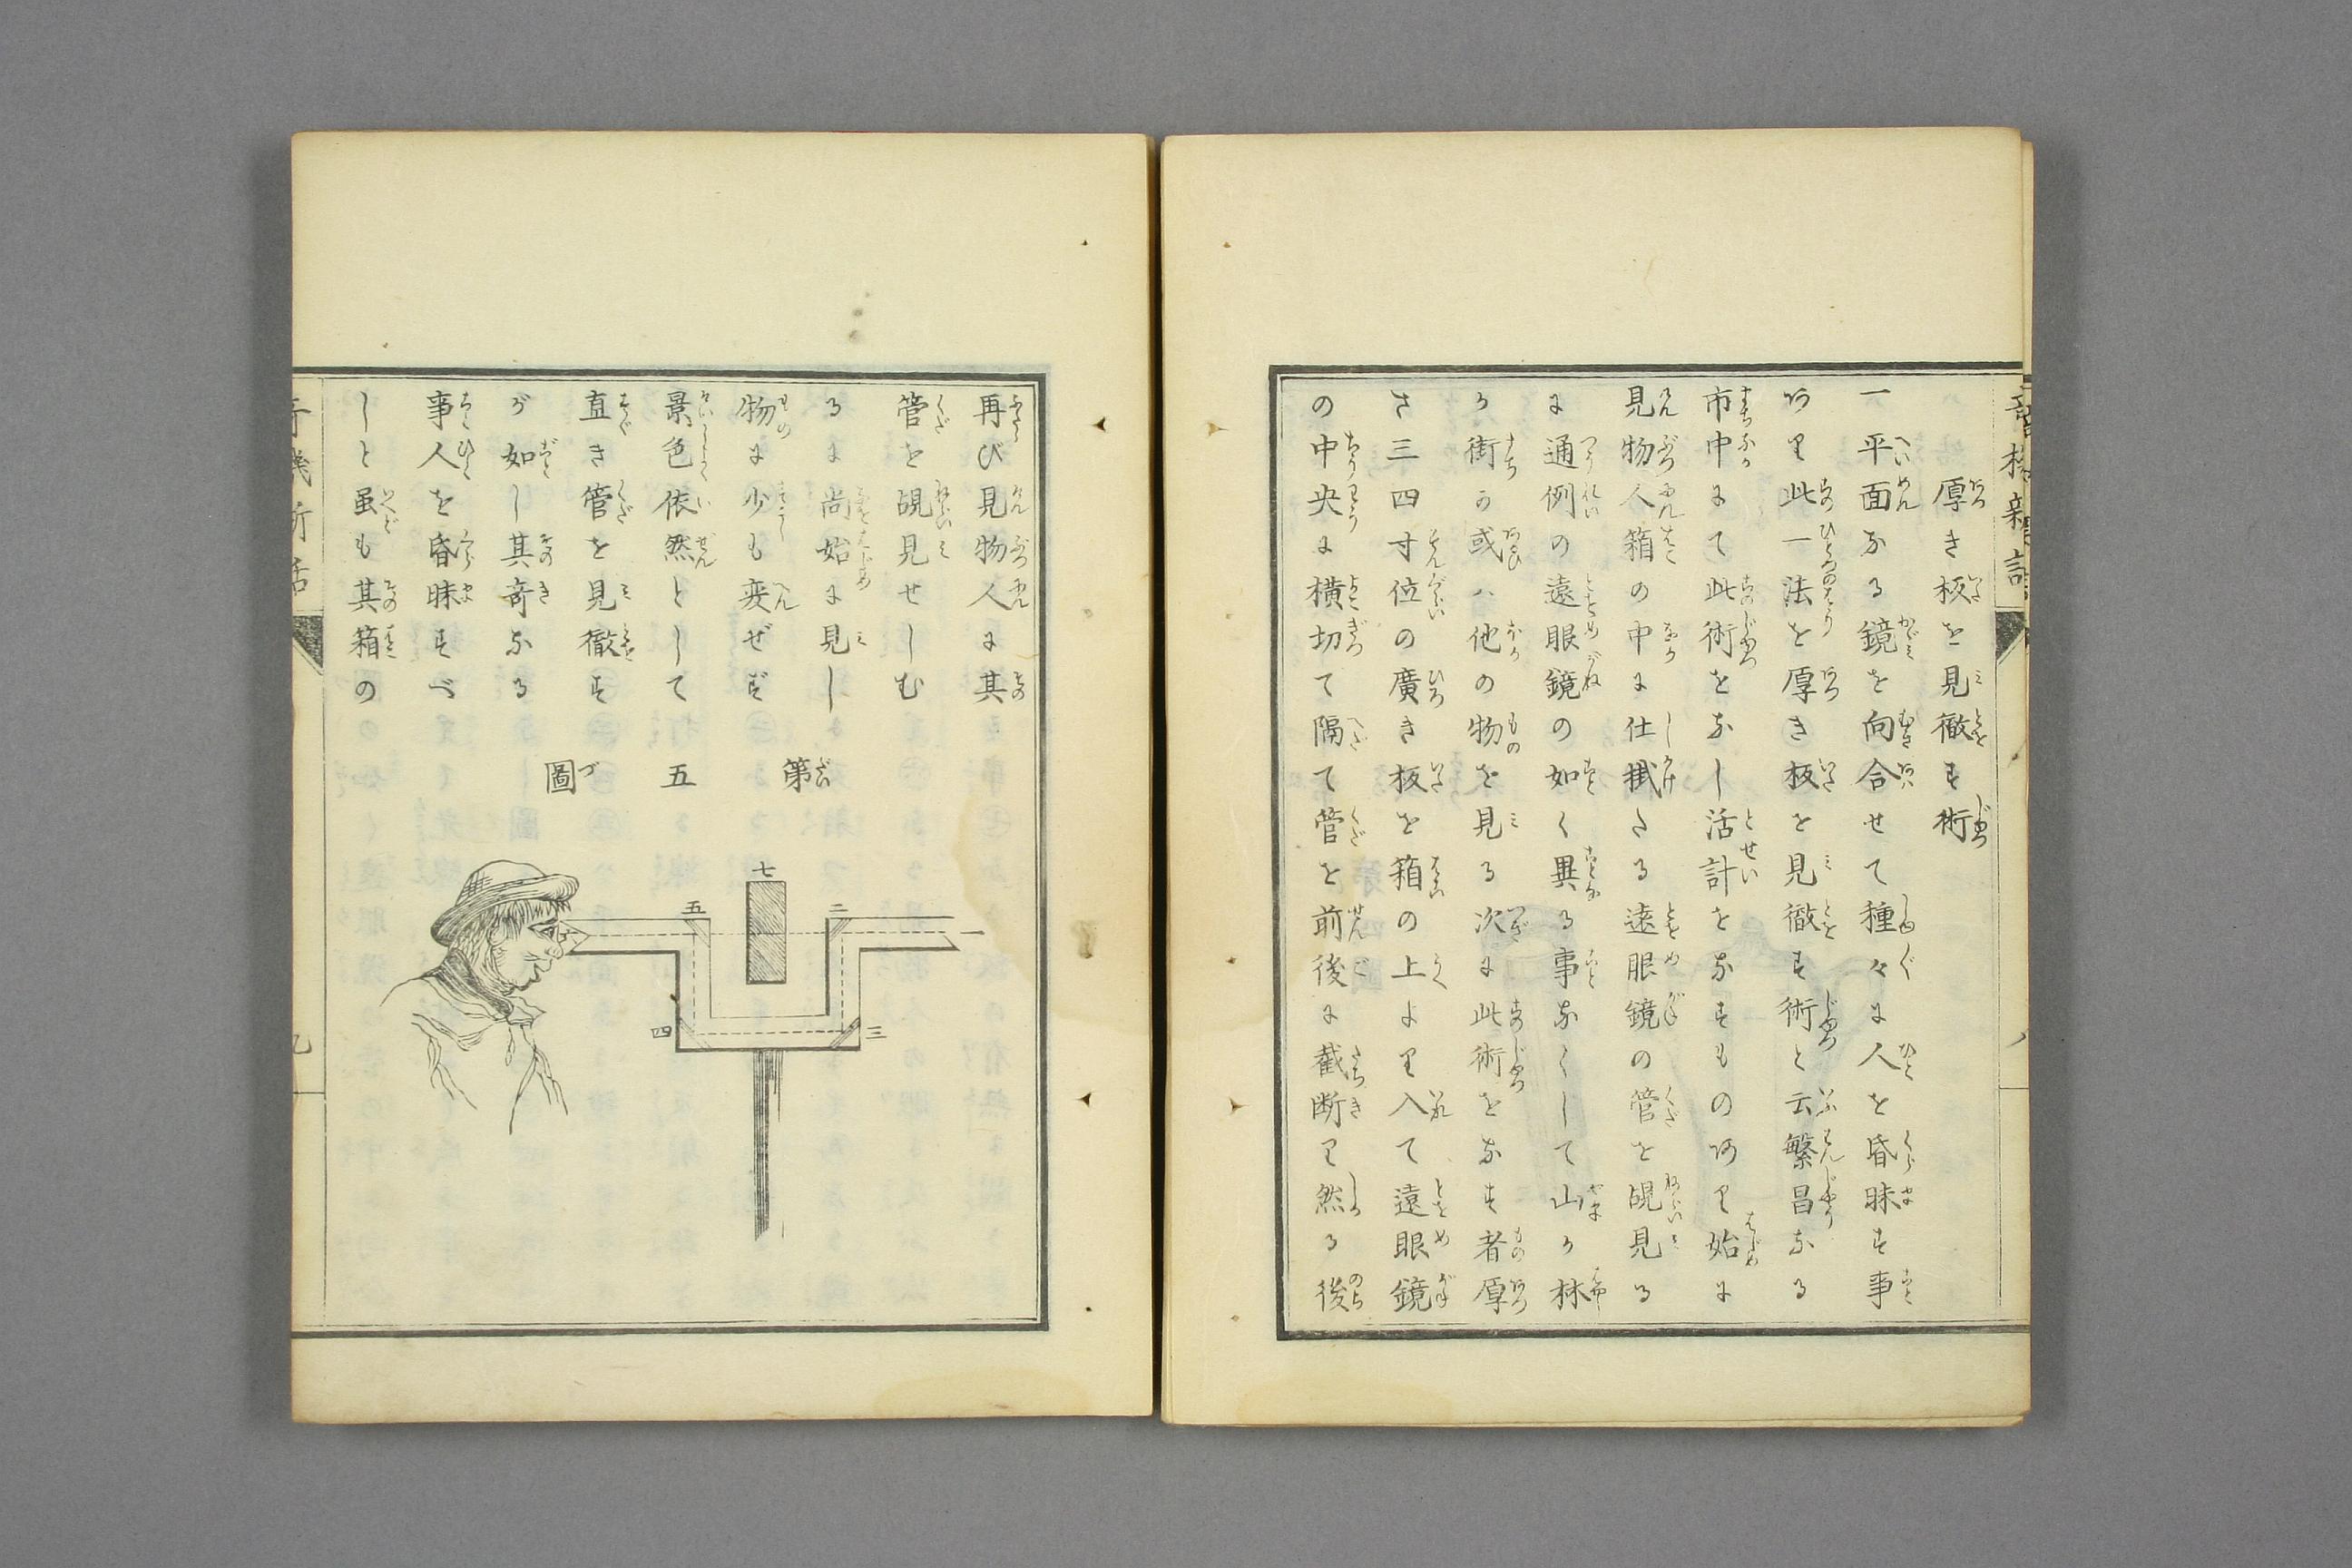 厚き板を見徹す術
一平面なる鏡を向合せて種々に人を昏昧す事
あり此一法を厚き板を見徹す術と云繁昌なる
市中にて此術をなし活計をなすものあり始に
見物人箱の中に仕掛たる遠眼鏡の管を覘見る
に通例の遠眼鏡の如く異る事なくして山か林
か街か或ハ他の物を見る次に此術をなす者厚
さ三四寸位の廣き板を箱の上より入て遠眼鏡
の中央に横切て隔て管を前後に截断り然る後
再び見物人に其
管を覘見せしむ
るに尚始に見し
物に少も変ぜず
景色依然として
直き管を見徹す
が如し其奇なる
事人を昏昧すべ
しと虽も其箱の
第五圖
七
五
二
四
三
九